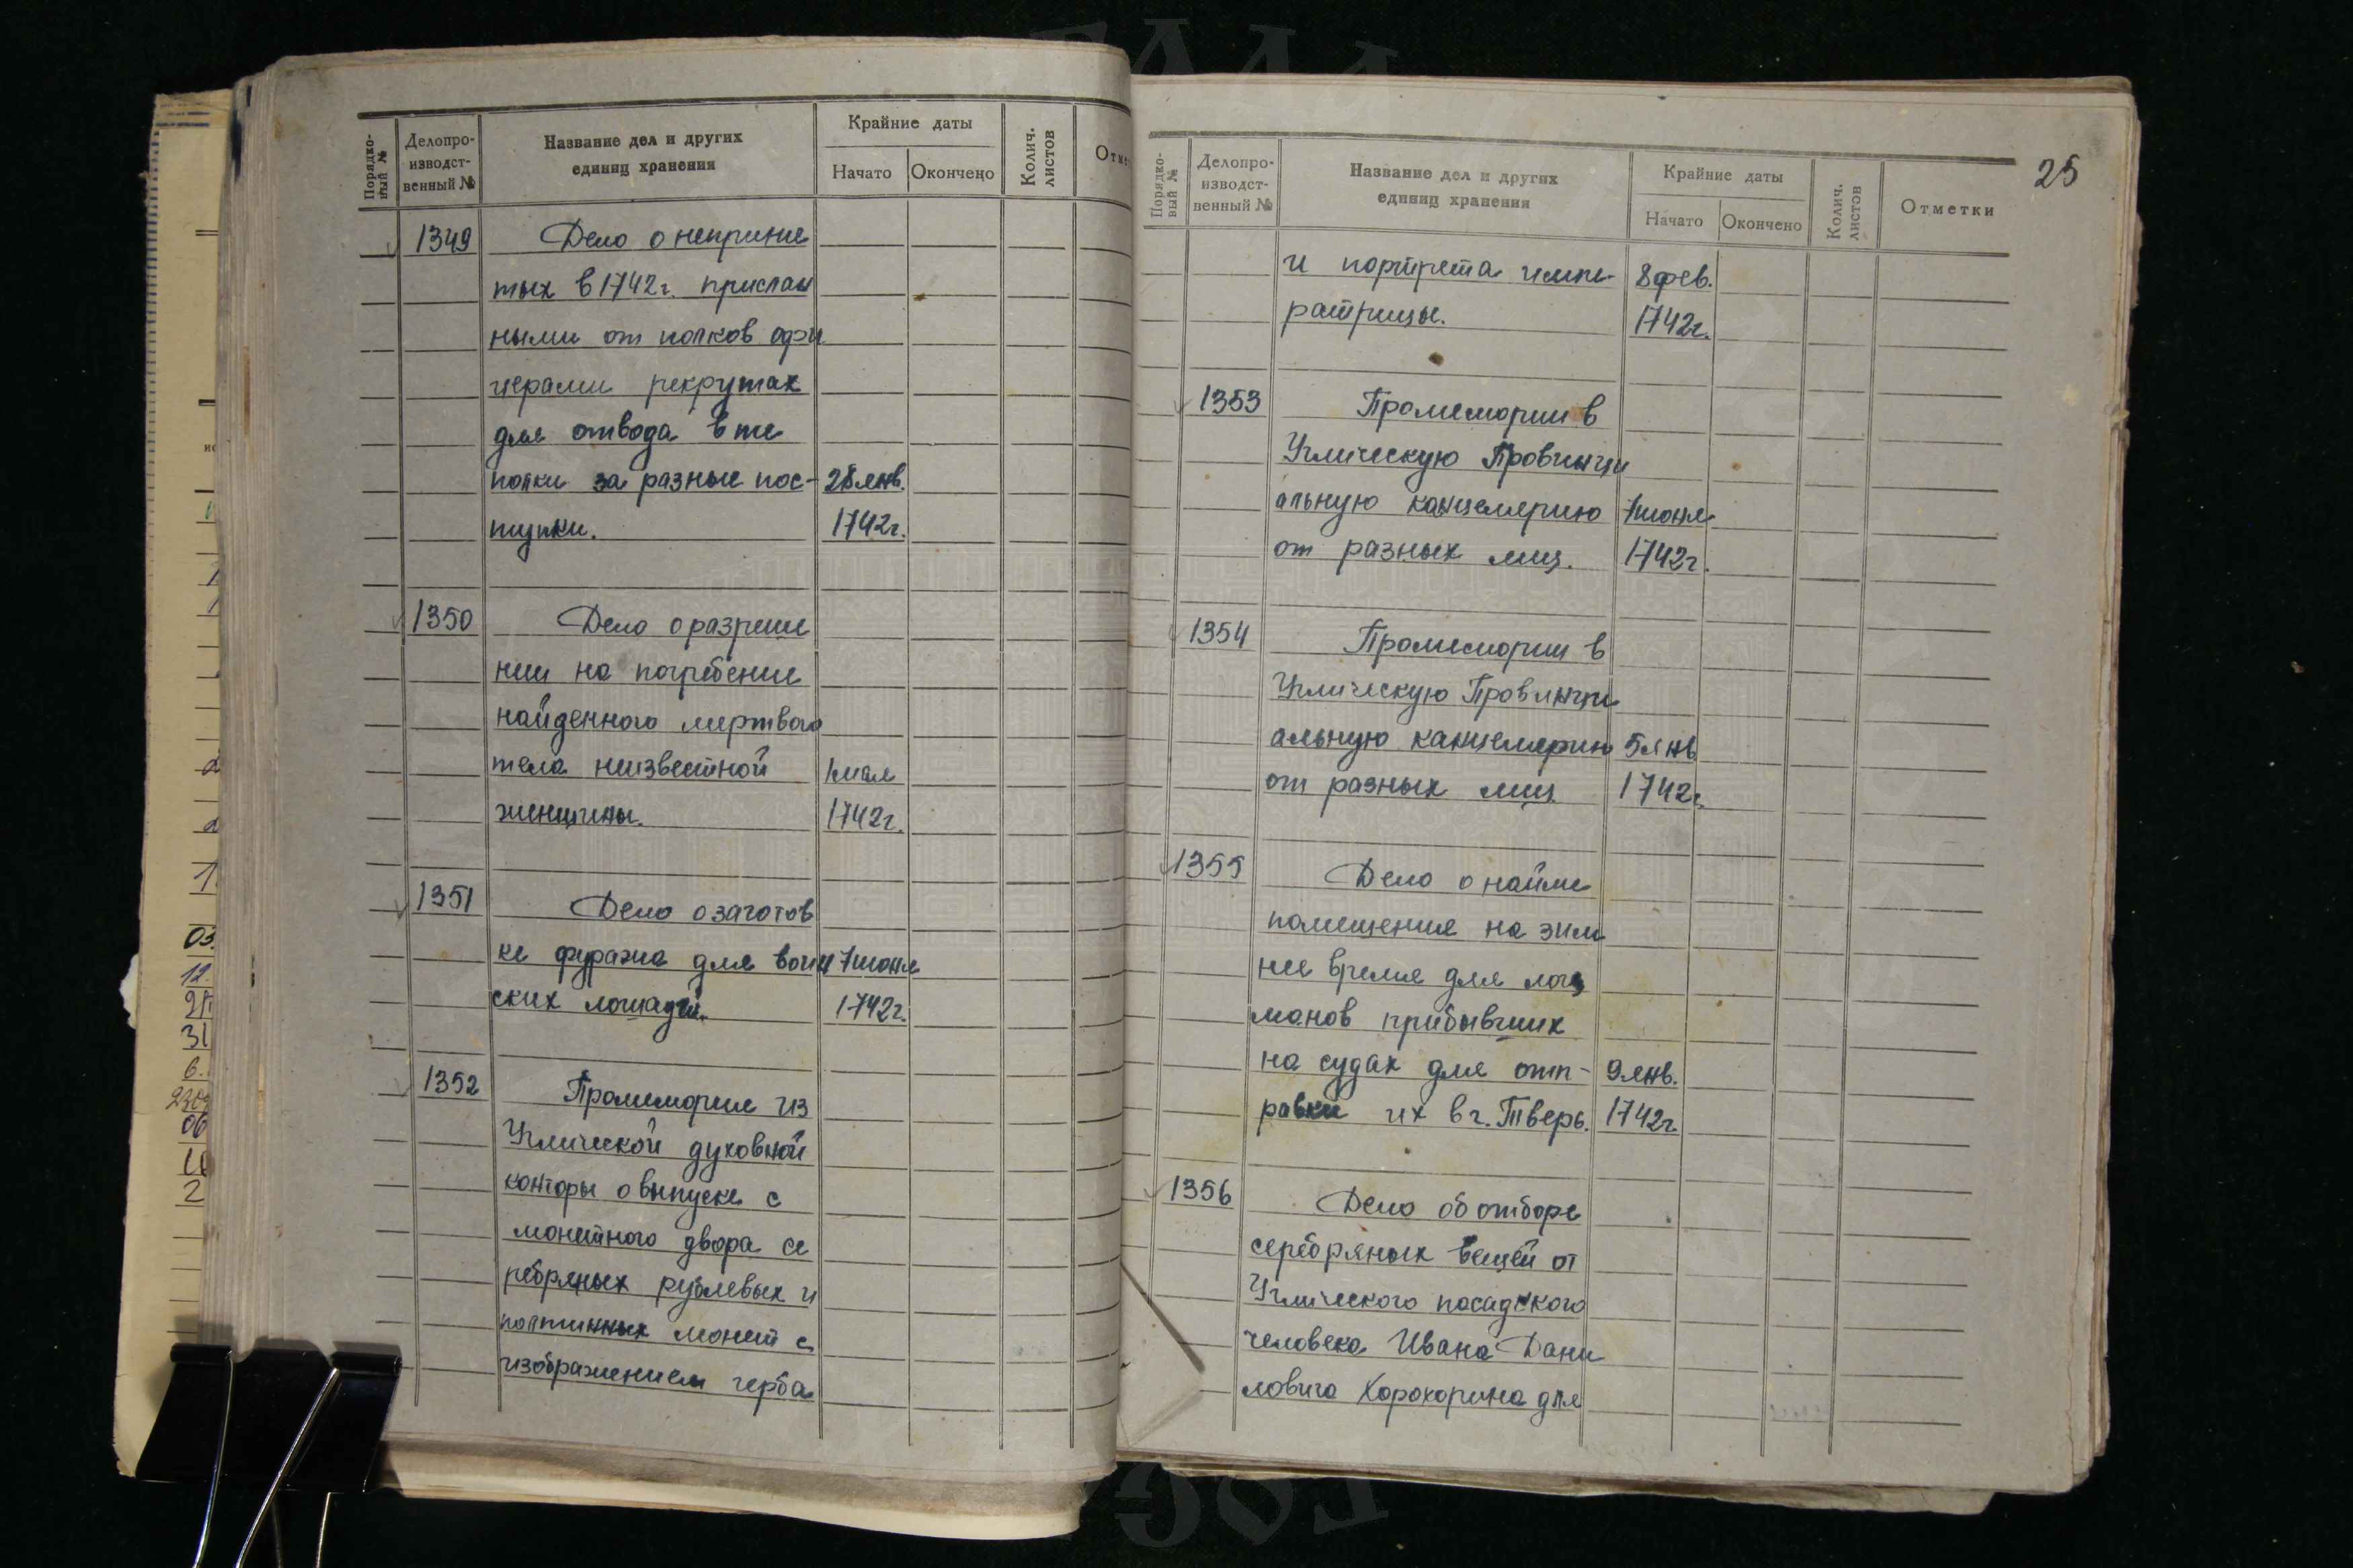 Порядко-
вый №
Делопро-
изводст-
венный №
Название дел и других
единиц хранения
Крайние даты
Начато
Окончено
Колич.
листов
1349 Дело о неприня
тых в 1742г. прислан
ными от полков офи
церами рекрутах
для отвода в те
полки за разные пос- 28 янв.
тупки. 1742г.
1350 Дело о разреше
нии на погребение
найденного мертвого
тела неизвестной 1 мая
женщины. 1742г.
1351 Дело о заготов
ке фуража для воин 7 июня
ских лошадей. 1742г.
1352 Промемория из
Угличской духовной
конторы о выпуске с
монетного двора се
ребряных рублевых и
полтинных монет с
изображением герба
25
Порядко-
вый №
Делопро-
изводст-
венный №
Название дел и других
единиц хранения
Крайние даты
Начато
Окончено
Колич.
листов
Отметки
и портрета импе- 8 фев.
ратрицы. 1742г.
1353 Промемории в
Угличскую Провинци
альную канцелярию 7 июня
от разных лиц. 1742г.
1354 Промемории в
Угличскую Провинци
альную канцелярию 5 янв
от разных лиц 1742г.
1355 Дело о найме
помещения на зим
нее время для лоц
манов прибывших
на судах для отп- 9 янв.
равки их в г. Тверь. 1742г.
1356 Дело об отборе
серебряных вещей от
Угличского посадского
человека Ивана Дани
ловича Хорохорина для